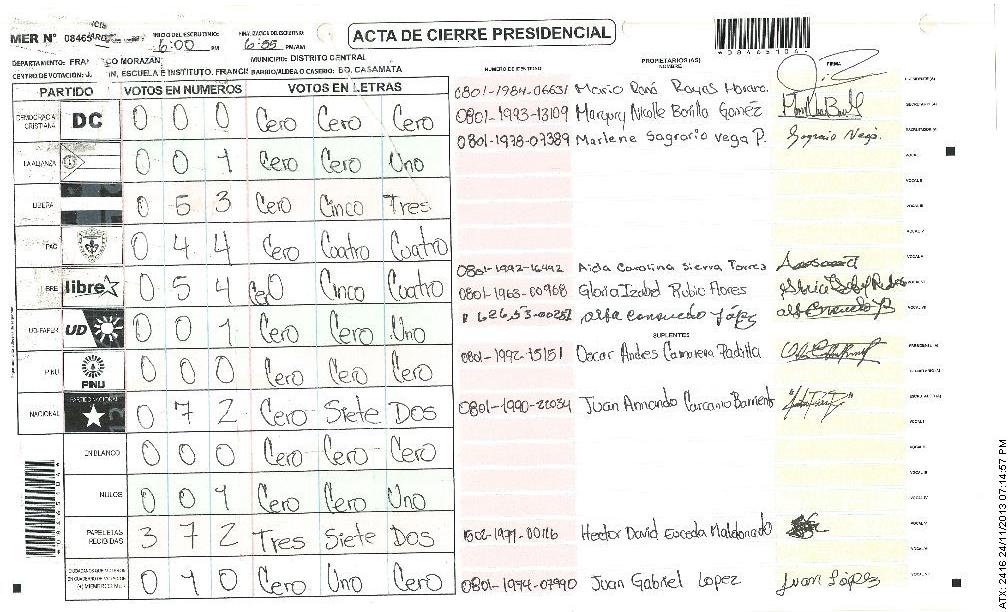 ACTA DE CIERRE PRESIDENCIAL
MER N° 08465
INICIO DEL ESCRUTINIO: 6:00 PM
FINALIZACION DEL ESCRUTINIO: 6:55 PM/AM
DEPARTAMENTO: FRA CO MORAZAN
MUNICIPIO: DISTRITO CENTRAL
CENTRO DE VOTACION: J. IN, ESCUELA E INSTITUTO, FRANCI BARRIO/ALDEA O CASERIO: BO. CASAMATA
PARTIDO VOTOS EN NUMEROS VOTOS EN LETRAS
DEMOCRACIA CRISTIANA DC 0 0 0 Cero Cero Cero
LA ALIANZA 0 0 1 Cero Cero Uno
LIBERA 0 5 3 Cero Cinco Tres
PAC 0 4 4 Cero Cuatro Cuatro
BRE libre 0 5 4 Cero Cinco Cuatro
UD-FAPER UD 0 0 1 Cero Cero Uno
PINU PINU 0 0 0 Cero Cero Cero
NACIONAL PARTIDO NACIONAL 0 7 2 Cero Siete Dos
EN BLANCO 0 0 0 Cero Cero Cero
NULOS 0 0 1 Cero Cero Uno
PAPELETAS RECIBIDAS 3 7 2 Tres Siete Dos
0 1 0 Cero Uno Cero
PROPIETARIOS (AS)
NUMERO DE IDENTIDAD NOMBRE FIRMA
0801-1984-06631 Mario René Rayas
0801-1993-13109 Margury Nicolle Bonilla Gomez
0801-1978-07389 Marlene Sagrario Vega P.
0801-1992-16492 Aida Carolina Sierra Torres
0801-1963-00968 Gloria Izabel Rubio Flores
alfa consuelo López
SUPLENTES
0801-1992-15151 Oscar Andres Camarena Padilla
0801-1990-22034 Juan Armando
1502-1971-00116 Hector David Euceda Maldonado
0801-1974-07990 Juan Gabriel Lopez Juan López
ATX-2416 24/11/2013 07:14:57 PM